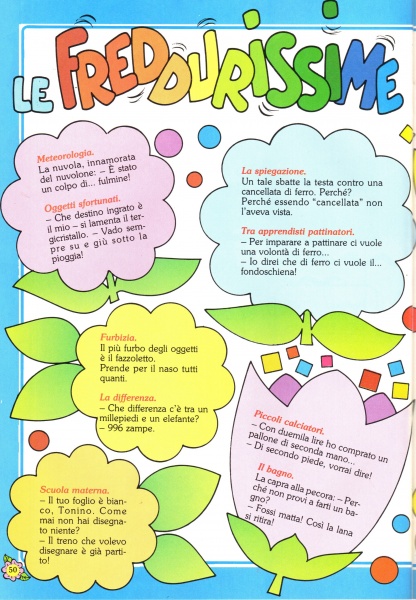 LE FREDDURISSIME
Meteorologia.
La nuvola, innamorata
del nuvolone: – È stato
un colpo di... fulmine!
Oggetti sfortunati.
– Che destino ingrato è
il mio – si lamenta il ter-
gicristallo. – Vado sem-
pre su e giù sotto la
pioggia!
La spiegazione.
Un tale sbatte la testa contro una
cancellata di ferro. Perché?
Perché essendo "cancellata" non
l'aveva vista.
Tra apprendisti pattinatori.
– Per imparare a pattinare ci vuole
una volontà di ferro...
– Io direi che di ferro ci vuole il...
fondoschiena!
Furbizia.
Il più furbo degli oggetti
è il fazzoletto.
Prende per il naso tutti
quanti.
La differenza.
– Che differenza c'è tra un
millepiedi e un elefante?
– 996 zampe.
Piccoli calciatori.
– Con duemila lire ho comprato un
pallone di seconda mano...
– Di secondo piede, vorrai dire!
Il bagno.
La capra alla pecora: – Per-
ché non provi a farti un ba-
gno?
– Fossi matta! Così la lana
si ritira!
Scuola materna.
– Il tuo foglio è bian-
co, Tonino. Come
mai non hai disegna-
to niente?
– Il treno che volevo
disegnare è già parti-
to!
50